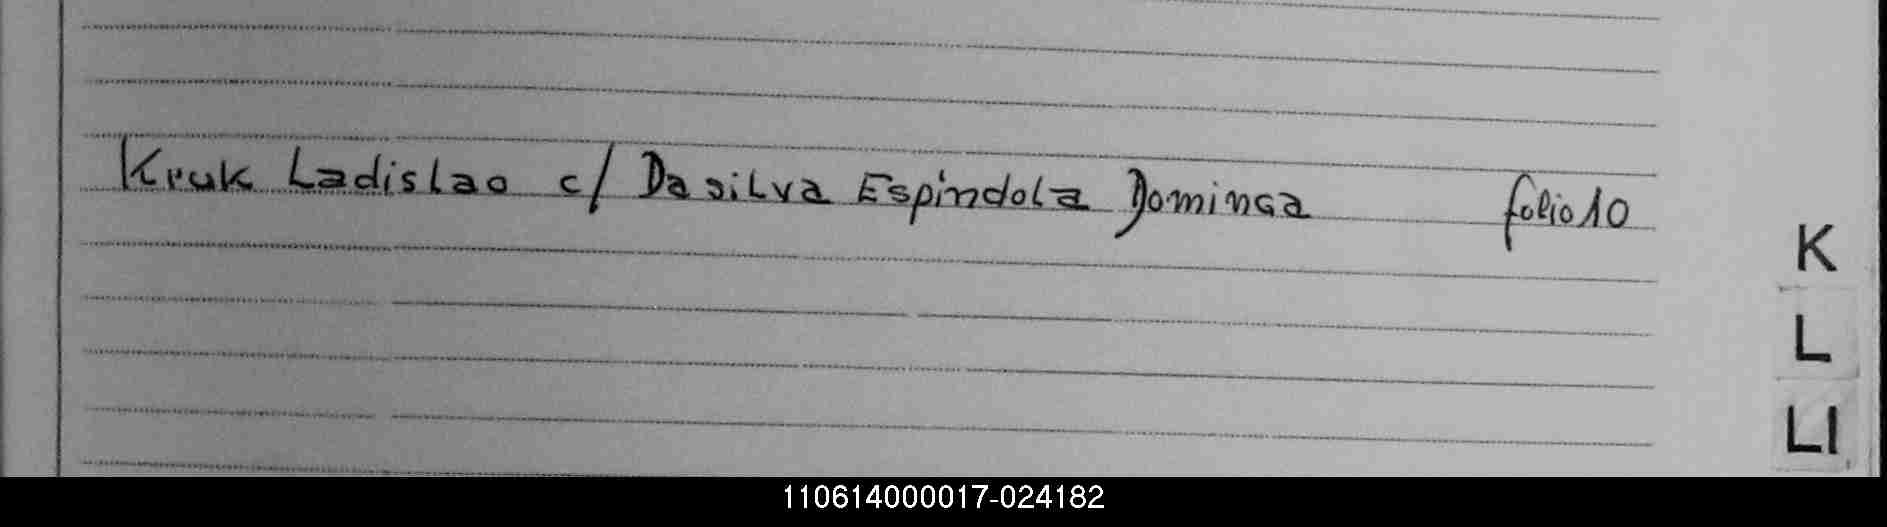 Kruk Ladislao c/ Dasilva Espíndola Dominga folio 10
K
L
Ll
110614000017-024182